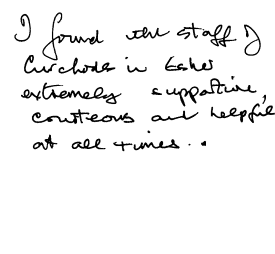 I found the staff of
Curchods in Esher
extremely supportive,
courteous and helpful
at all times..